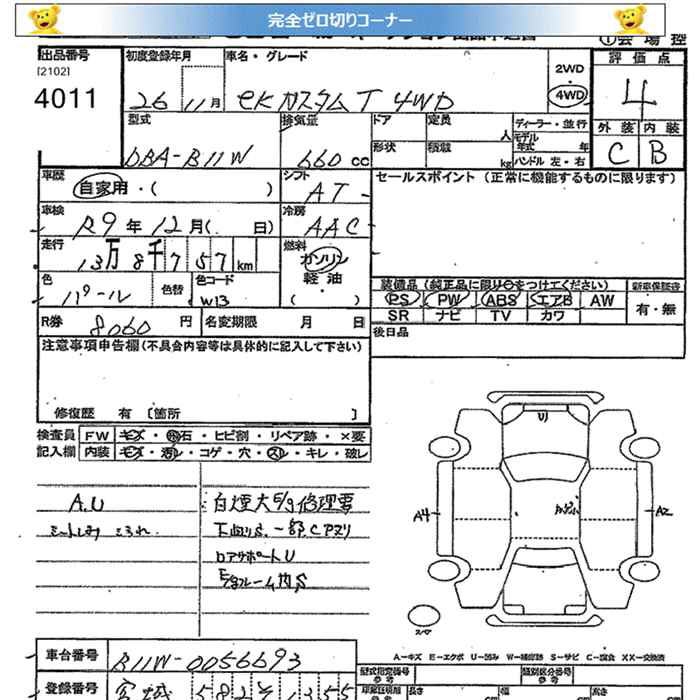 完全ゼロ切りコーナー
出品番号 初度登録年月 車名・グレード 評価点
[2102]
4011 26 11月 eKカスタムT 4WD 2WD 4WD 4
型式 排気量 ドア 定員 人 ディーラー・並行 外装 内装
DBA-B11W 660cc 形状 積載 kg モデル年式 年 ハンドル 左・右 C B
車歴 シフト セールスポイント (正常に機能するものに限ります)
自家用・( ) AT
車検 冷房
R9年12月( 日) AAC
走行 燃料
13万8千757km ガソリン
色 色替 色コード 軽油
パール W13 ( )
装備品 (純正品に限り○をつけてください) 新車保証書
PS PW ABS エアB AW 有・無
SR ナビ TV カワ
R券 8060円 名変期限 月 日 後日品
注意事項申告欄(不具合内容等は具体的に記入して下さい)
修復歴 有 〔箇所 〕
検査員 FW キズ・飛石・ヒビ割・リペア跡・×要
記入欄 内装 キズ・汚レ・コゲ・穴・スレ・キレ・破レ
A.U 白煙大E/g修理要
下廻りS.一部Cアリ
ロアサポートU
U
A4 A2
スペア
A-キズ E-エクボ U-凹み W-補修跡 S-サビ C-腐食 XX-交換済
車台番号 B11W-0056693
型式指定番号 参考 類別区分番号 参考
登録番号 宮城 582 そ 1355
長さ 幅 高さ